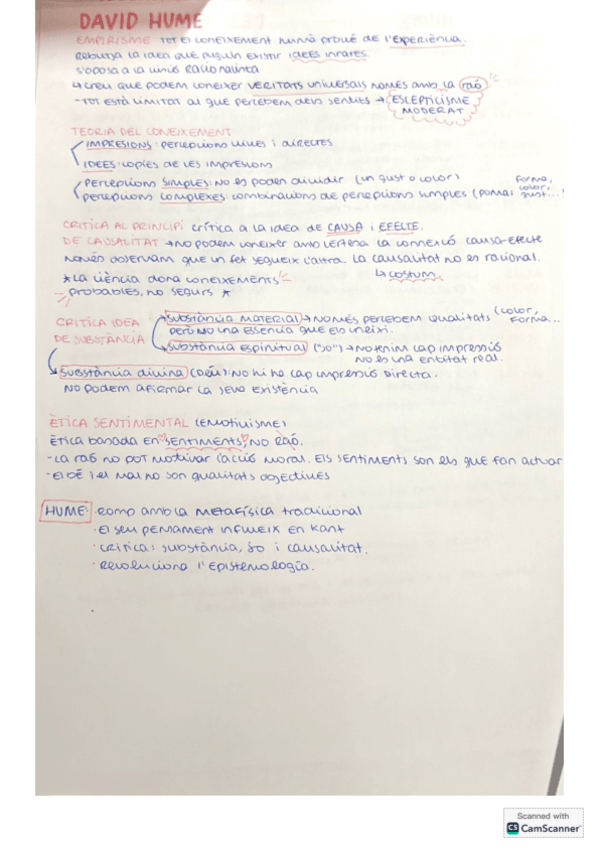 DAVID HUME
EMPIRISME TOT EL CONEIXEMENT HUMÀ PROVÉ DE L'EXPERIÈNCIA.
REBUTJA LA IDEA QUE PUGUIN EXISTIR IDEES INNATES.
S'OPOSA A LA UNIÓ RACIONALISTA
↳ CREU QUE PODEM CONEIXER VERITATS UNIVERSALS NOMÉS AMB LA RAÓ
- TOT ESTÀ LIMITAT AL QUE PERCEBEM DELS SENTITS → ESCEPTICISME
MODERAT
TEORIA DEL CONEIXEMENT
IMPRESIONS: PERCEPCIONS VIVES I DIRECTES
IDEES: CÒPIES DE LES IMPRESSIONS
PERCEPCIONS SIMPLES: NO ES PODEN DIVIDIR (UN GUST O COLOR)
PERCEPCIONS COMPLEXES: COMBINACIONS DE PERCEPCIONS SIMPLES (POMA: FORMA, COLOR, GUST...)
CRÍTICA AL PRINCIPI CRÍTICA A LA IDEA DE CAUSA I EFECTE.
DE CAUSALITAT → NO PODEM CONEIXER AMB CERTESA LA CONNEXIÓ CAUSA-EFECTE
NOMÉS OBSERVAM QUE UN FET SEGUEIX L'ALTRA. LA CAUSALITAT NO ES RACIONAL.
↳ COSTUM
* LA CIÈNCIA DONA CONEIXEMENTS
PROBABLES, NO SEGURS *
CRÍTICA IDEA
DE SUBSTÀNCIA
SUBSTÀNCIA MATERIAL → NOMÉS PERCEBEM QUALITATS (COLOR, FORMA...
PERÒ NO UNA ESSENCIA QUE ELS UNEIXI.
SUBSTÀNCIA ESPIRITUAL ("JO") → NO TENIM CAP IMPRESSIÓ
NO ES UNA ENTITAT REAL.
SUBSTÀNCIA DIVINA (DÉU): NO HI HA CAP IMPRESSIÓ DIRECTA.
NO PODEM AFIRMAR LA SEVA EXISTÈNCIA
ÈTICA SENTIMENTAL (EMOTIVISME)
ÈTICA BASADA EN SENTIMENTS, NO RAÓ.
- LA RAÓ NO POT MOTIVAR L'ACCIÓ MORAL. ELS SENTIMENTS SON ELS QUE FAN ACTUAR
- EL BÉ I EL MAL NO SON QUALITATS OBJECTIVES
HUME: ROMP AMB LA METAFÍSICA TRADICIONAL
· EL SEU PENSAMENT INFLUEIX EN KANT
· CRITICA: SUBSTÀNCIA, JO I CAUSALITAT.
· REVOLUCIONA L'EPISTEMOLOGIA.
Scanned with
CS CamScanner